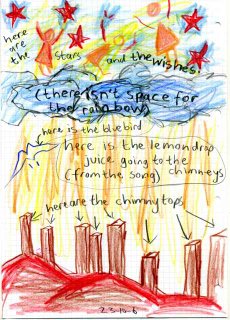 here
are
the stars and the wishes!
(there isn't space for
the rainbow)
here is the bluebird
here is the lemon drop
juice going to the
(from the song) chimneys
here are the chimny tops